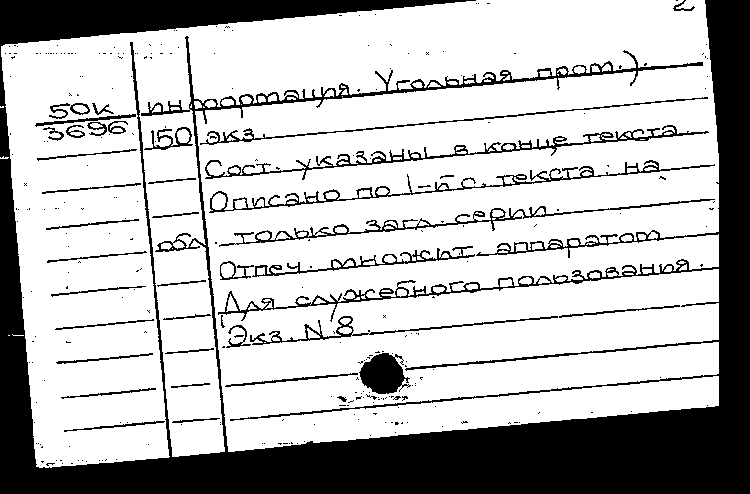 2
50к
3696
информация. Угольная пром.).
150 экз.
Сост. указаны в конце текста.
Описано по 1-й с. текста. на
обл. только загл. серии.
Отпеч. множит. аппаратом
Для служебного пользования.
Экз. N 8.